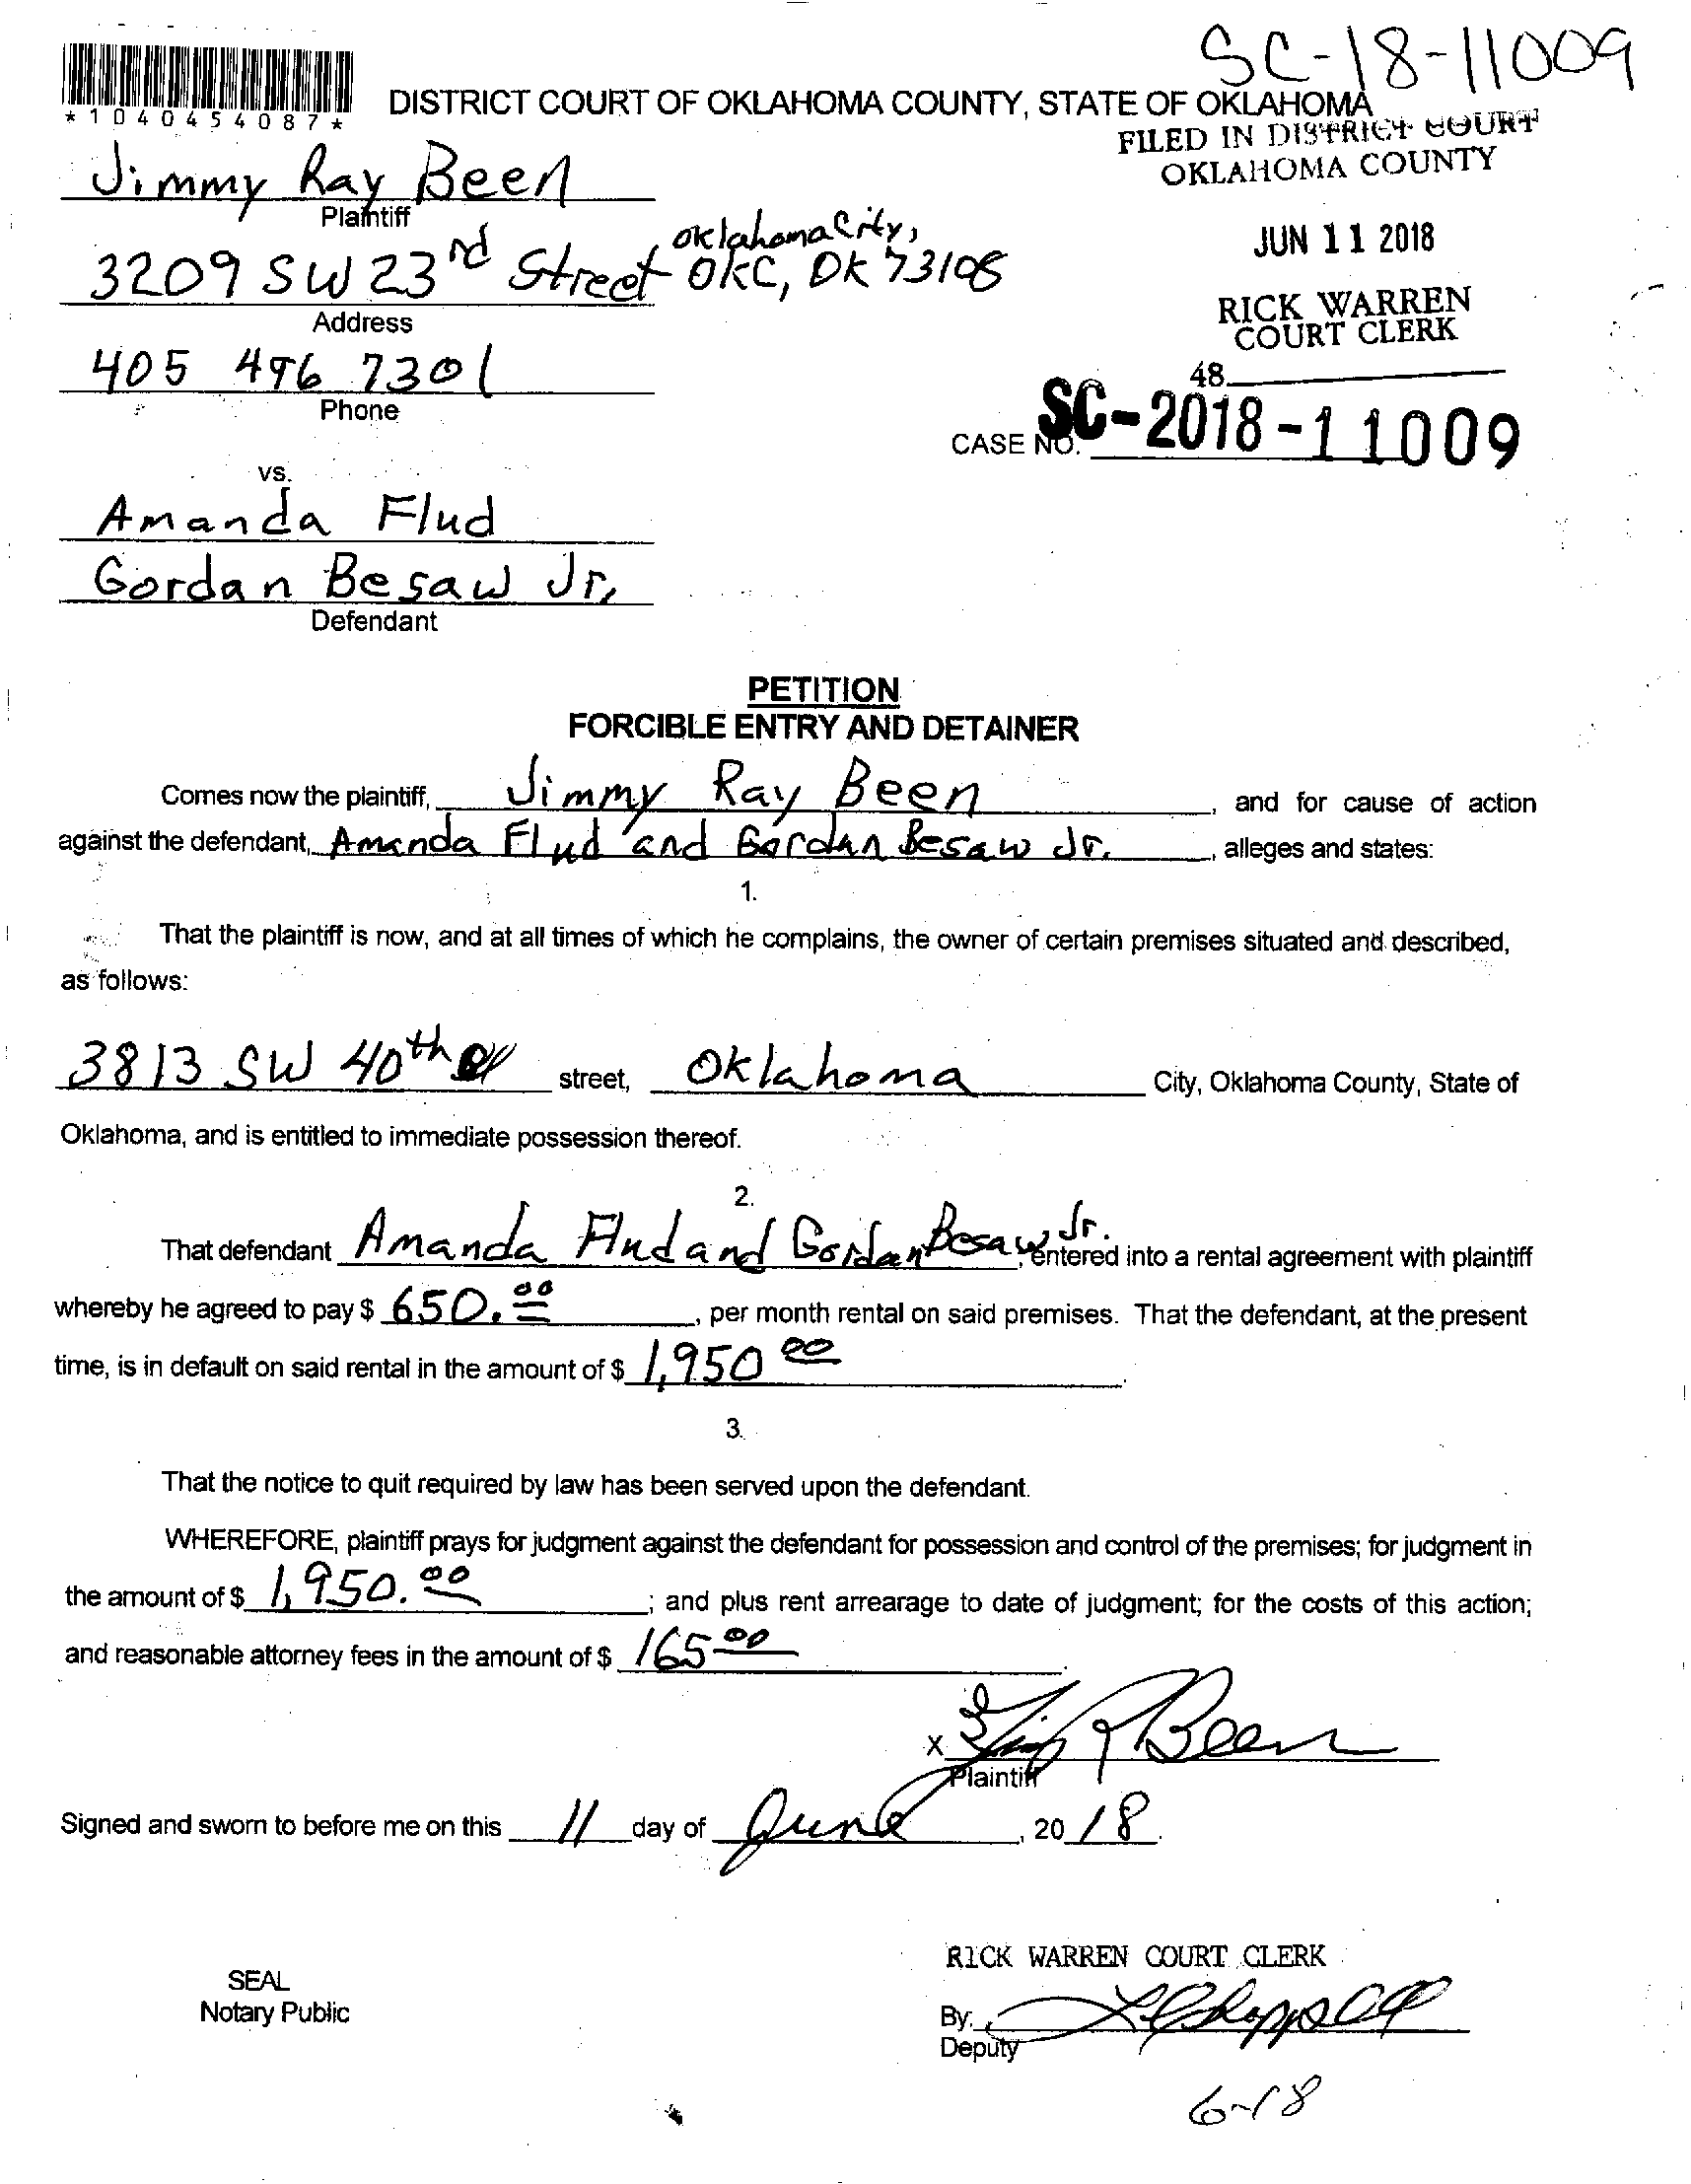 SC-18-11009
*1040454087*
DISTRICT COURT OF OKLAHOMA COUNTY, STATE OF OKLAHOMA
FILED IN DISTRICT COURT
OKLAHOMA COUNTY
Jimmy Ray Been
Plaintiff
JUN 11 2018
Oklahoma City,
3209 SW 23rd Street OKC, OK 73108
Address
RICK WARREN
COURT CLERK
405 496 7301
Phone
48
CASE NO. SC-2018-11009
vs.
Amanda Flud
Gordan Besaw Jr.
Defendant
PETITION
FORCIBLE ENTRY AND DETAINER
Comes now the plaintiff, Jimmy Ray Been, and for cause of action
against the defendant, Amanda Flud and Gordan Besaw Jr., alleges and states:
1.
That the plaintiff is now, and at all times of which he complains, the owner of certain premises situated and described,
as follows:
3813 SW 40th street, Oklahoma City, Oklahoma County, State of
Oklahoma, and is entitled to immediate possession thereof.
2.
That defendant Amanda Flud and Gordan Besaw Jr., entered into a rental agreement with plaintiff
whereby he agreed to pay $ 650.00, per month rental on said premises. That the defendant, at the present
time, is in default on said rental in the amount of $ 1,950 00.
3.
That the notice to quit required by law has been served upon the defendant.
WHEREFORE, plaintiff prays for judgment against the defendant for possession and control of the premises; for judgment in
the amount of $ 1,950.00; and plus rent arrearage to date of judgment; for the costs of this action;
and reasonable attorney fees in the amount of $ 165 00.
X Jim R Been
Plaintiff
Signed and sworn to before me on this 11 day of June, 20 18.
RICK WARREN COURT CLERK
SEAL
Notary Public
By:
Deputy
6-18